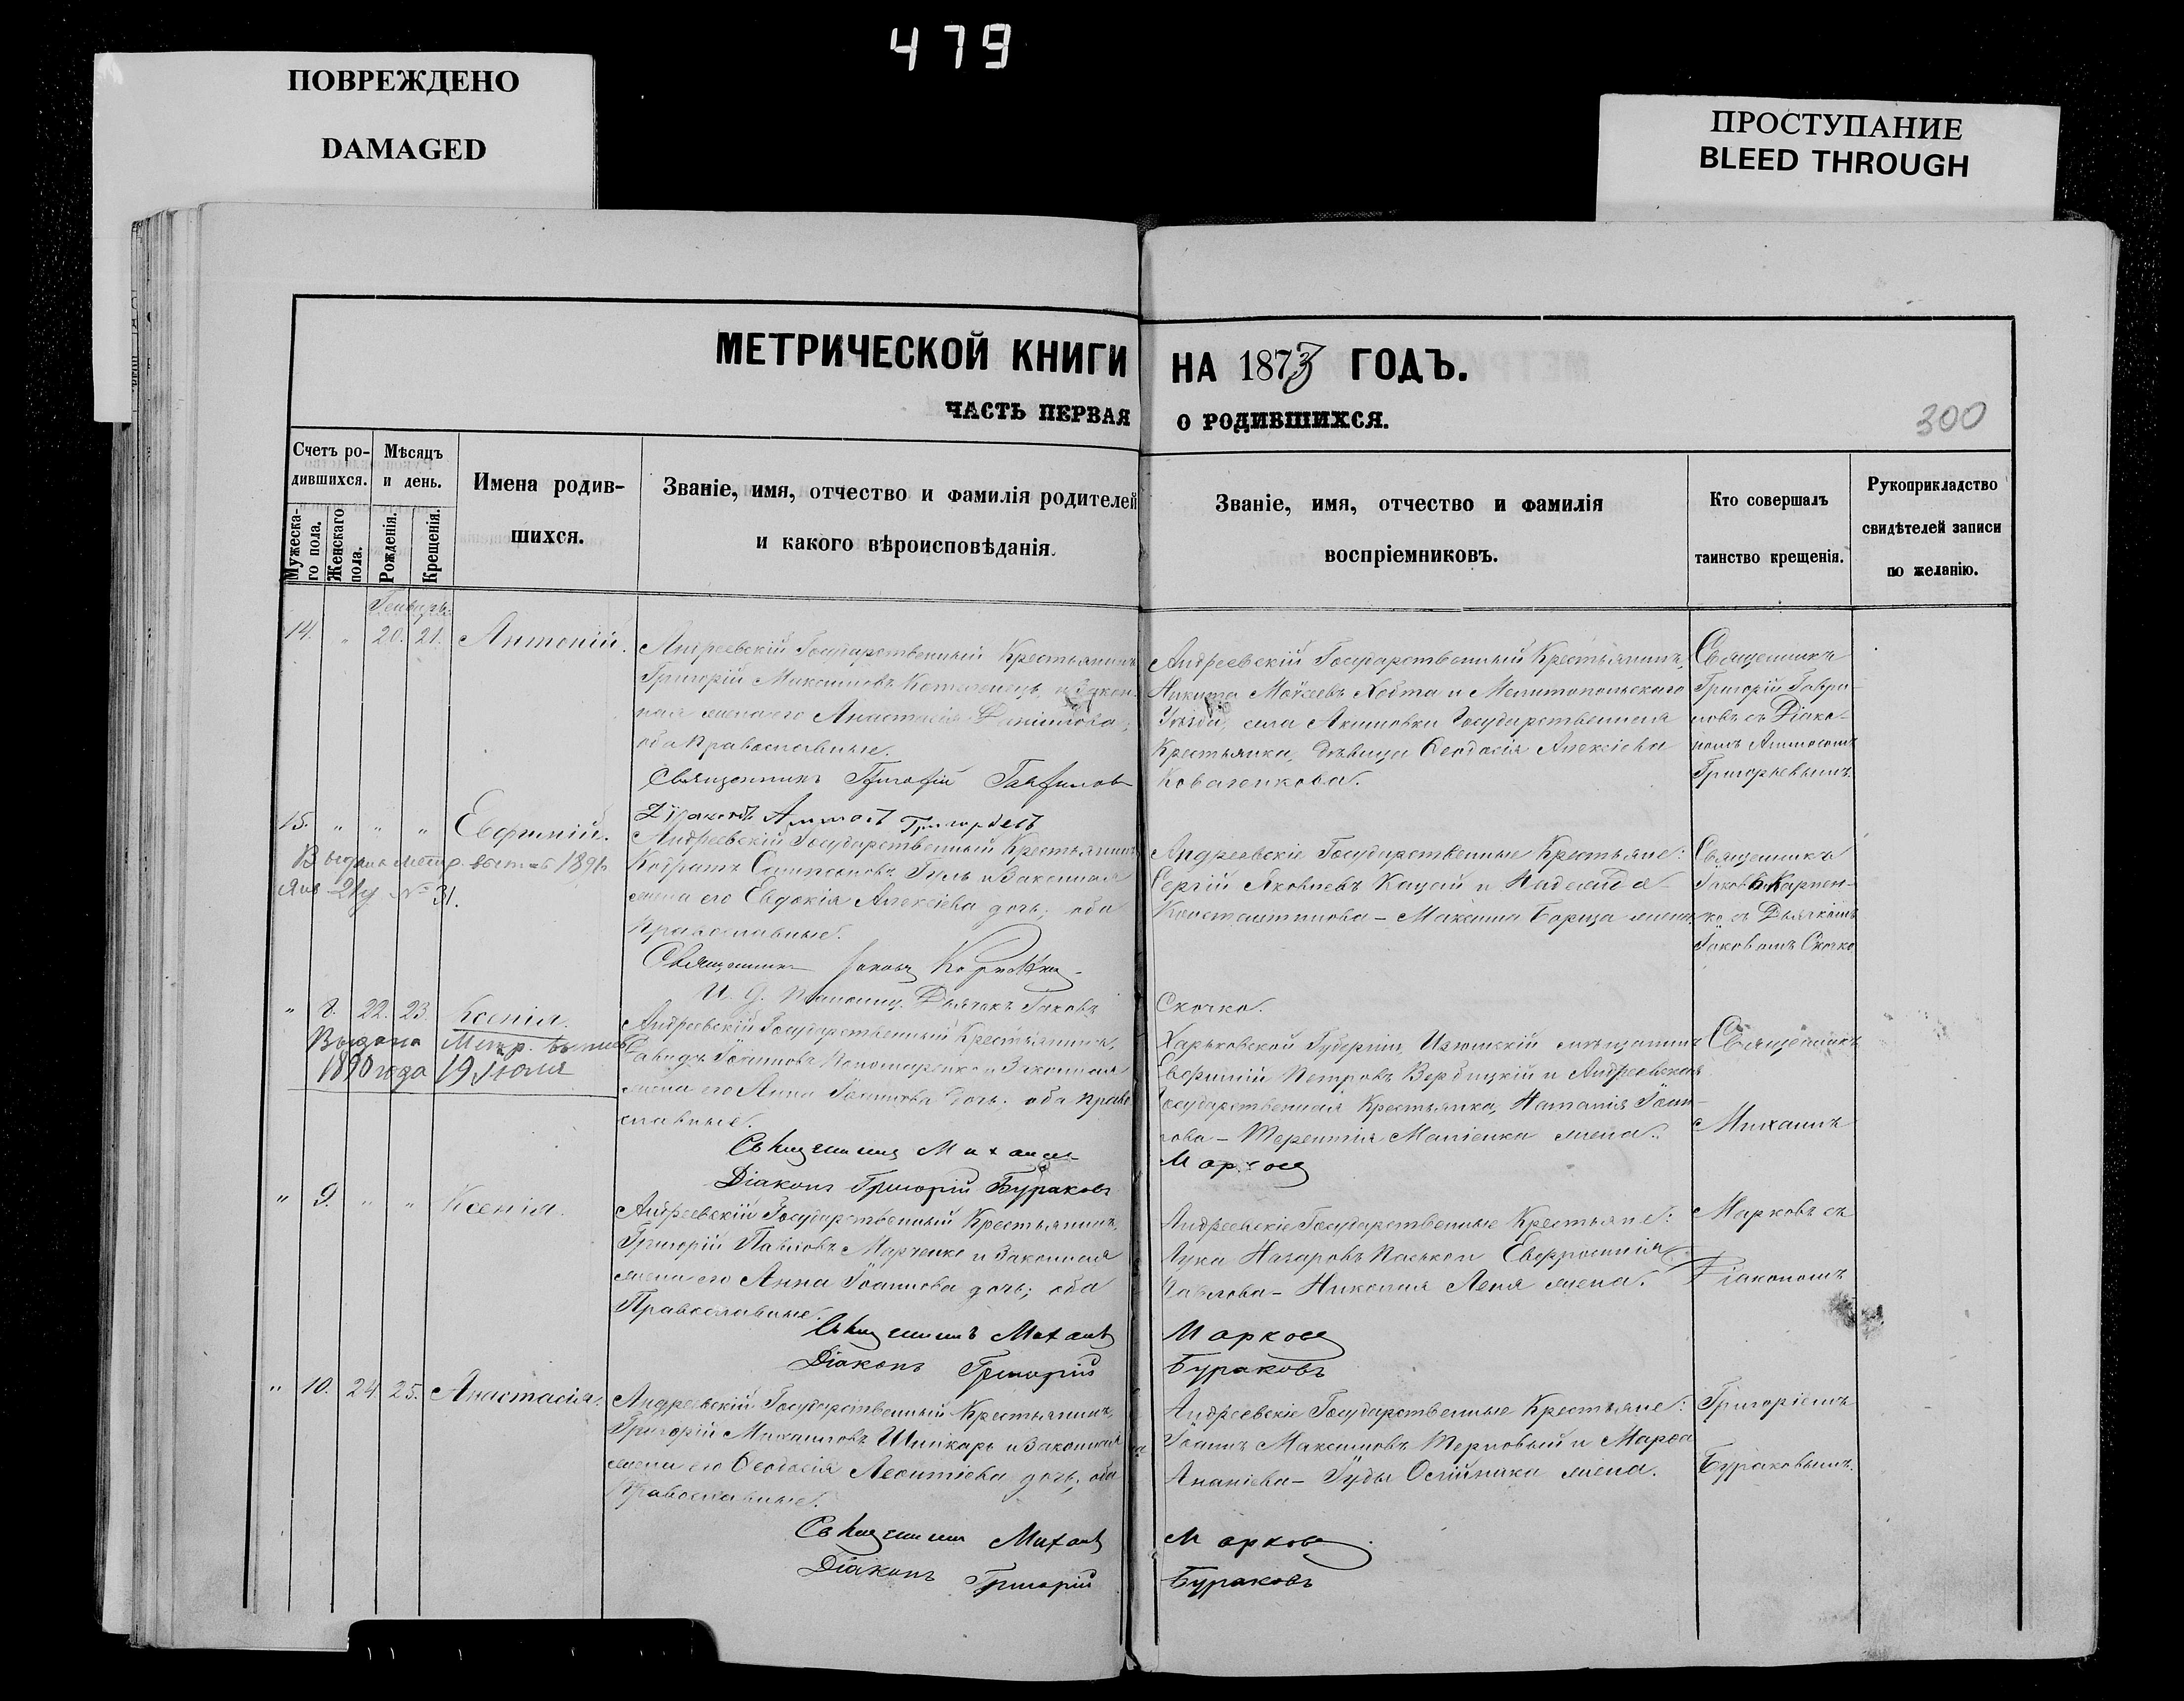 479
ПОВРЕЖДЕНО
DAMAGED
ПРОСТУПАНИЕ
BLEED THROUGH
МЕТРИЧЕСКОЙ КНИГИ НА 1873 ГОДЪ.
ЧАСТЬ ПЕРВАЯ О РОДИВШИХСЯ.
300
Счетъ ро-
дившихся.
Мужеска-
го пола.
Женскаго
пола.
Мѣсяцъ
и день.
Рожденія.
Крещенія.
Имена родив-
шихся.
Званіе, имя, отчество и фамилія родителей
и какого вѣроисповѣданія.
Званіе, имя, отчество и фамилія
воспріемниковъ.
Кто совершалъ
таинство крещенія.
Рукоприкладство
свидѣтелей записи
по желанію.
14. " 20. 21. Антоній.
Андреевскій Государственный Крестьянинъ
Григорій Максимовъ и Закон-
ная жена его Анастасія
оба Православные.
Священникъ Григорій Гаврилов
Діаконъ Григорьевъ
Андреевскій Государственный Крестьянинъ,
Никита Моѵсеевъ и Мелитопольскаго
Уѣзда, села Акимовки Государственная
Крестьянка, дѣвица Ѳеодосія Алексіева
Коваленкова.
Священникъ
Григорій Гаври-
ловъ съ Діако-
номъ
Григорьевымъ.
15. " " " Евфимій.
Выдана метр. 1891
Янв №31.
Андреевскій Государственный Крестьянинъ
Кодратъ и Законная
жена его Евдокія Алексіева дочь; оба
Православные.
Священникъ Іаковъ
И. д. Дьячокъ Іаковъ
Скочко.
Андреевскіе Государственные Крестьяне:
Сергій Яковлевъ Кацай и Надежда
Константинова - Максима Борща жена.
Священникъ
Іаковъ Карпен-
ко съ Дьячкомъ
Іаковомъ Скочко
" 8. 22. 23. Ксенія.
Выдана Метр.
1890 года 19 Іюля
Андреевскій Государственный Крестьянинъ,
Давидъ Іоанновъ Пономаренко и Законная
жена его Анна Іоаннова дочь: оба право-
славные.
Священникъ Михаилъ
Марковъ
Діаконъ Григорій Бураковъ
Харьковской Губерніи, Изюмскій мѣщанинъ
Евфимій Петровъ Вербицкій и Андреевская
Государственная Крестьянка, Наталія Іоан-
нова - Терентія жена.
Священникъ
Михаилъ
" 9. " " Ксенія.
Андреевскій Государственный Крестьянинъ,
Григорій Павловъ Марченко и Законная
жена его Анна Іоаннова дочь; оба
Православные.
Священникъ Михаилъ Марковъ
Діаконъ Григорій Бураковъ
Андреевскіе Государственные Крестьяне:
Лука Назаровъ Евфросинія
Павлова - Николая жена.
Марковъ съ
Діакономъ
" 10. 24. 25. Анастасія.
Андреевскій Государственный Крестьянинъ,
Григорій Михаиловъ Шинкарь и Законная
жена его Ѳеодосія Леонтіева дочь; оба
Православные.
Священникъ Михаилъ Марковъ
Діаконъ Григорій Бураковъ
Андреевскіе Государственные Крестьяне:
Іоаннъ Максимовъ Терновый и Марѳа
Ананіева - Іуды жена.
Григоріемъ
Бураковымъ.